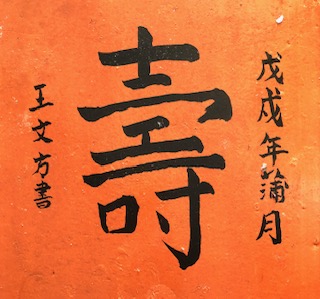 戊戌年蒲月
壽
王文方書